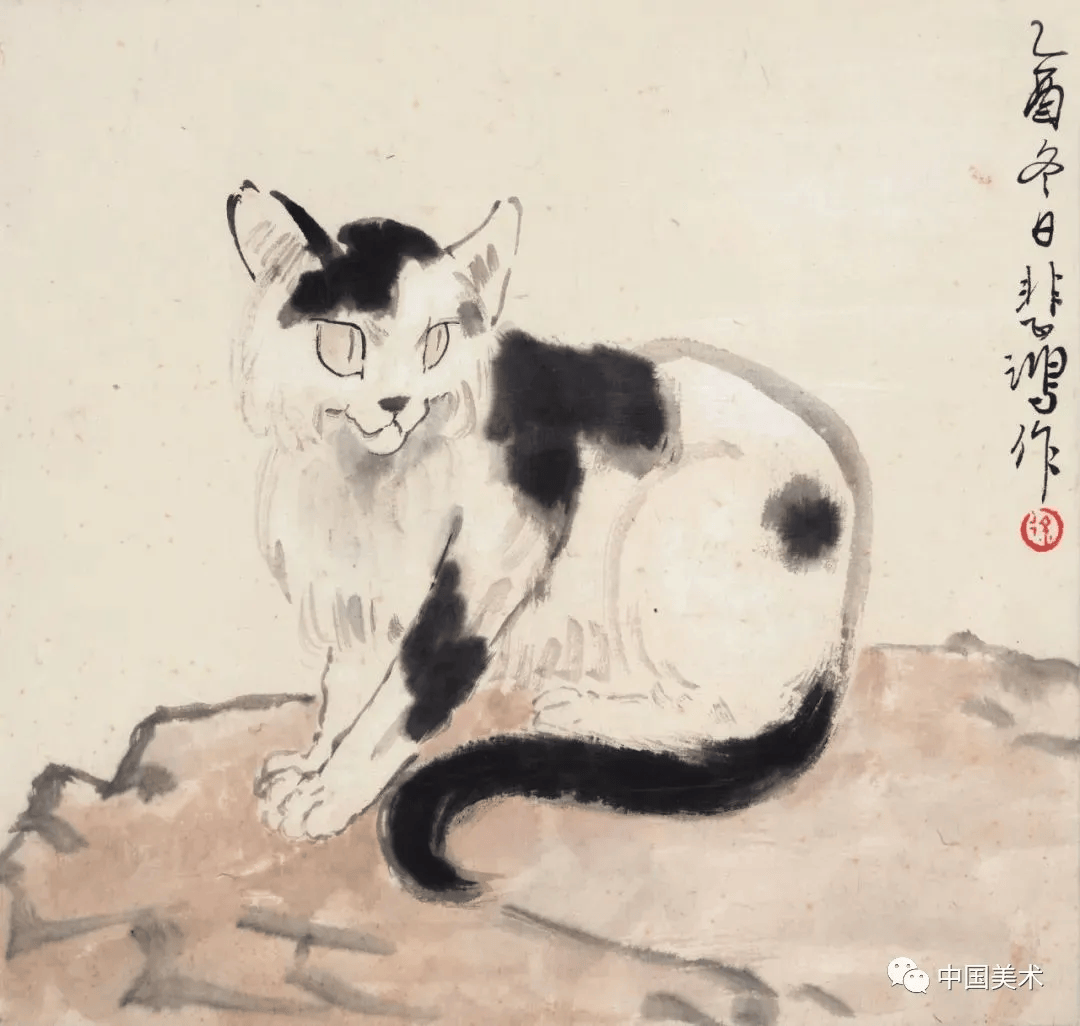 乙酉冬日悲鸿作
中国美术